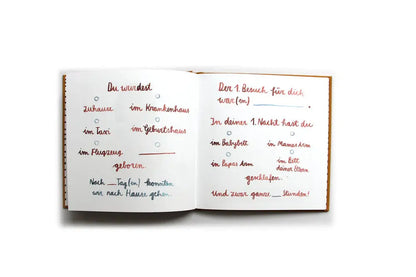 Du wurdest
zuhause
im Krankenhaus
im Taxi
im Geburtshaus
im Flugzeug
geboren.
Nach __ Tag(en) konnten
wir nach Hause gehen.
Der 1. Besuch für dich
war(en) ________.
In deiner 1. Nacht hast du
im Babybett
in Mamas Arm
in Papas Arm
im Bett
deiner Eltern
geschlafen.
Und zwar ganze __ Stunden!